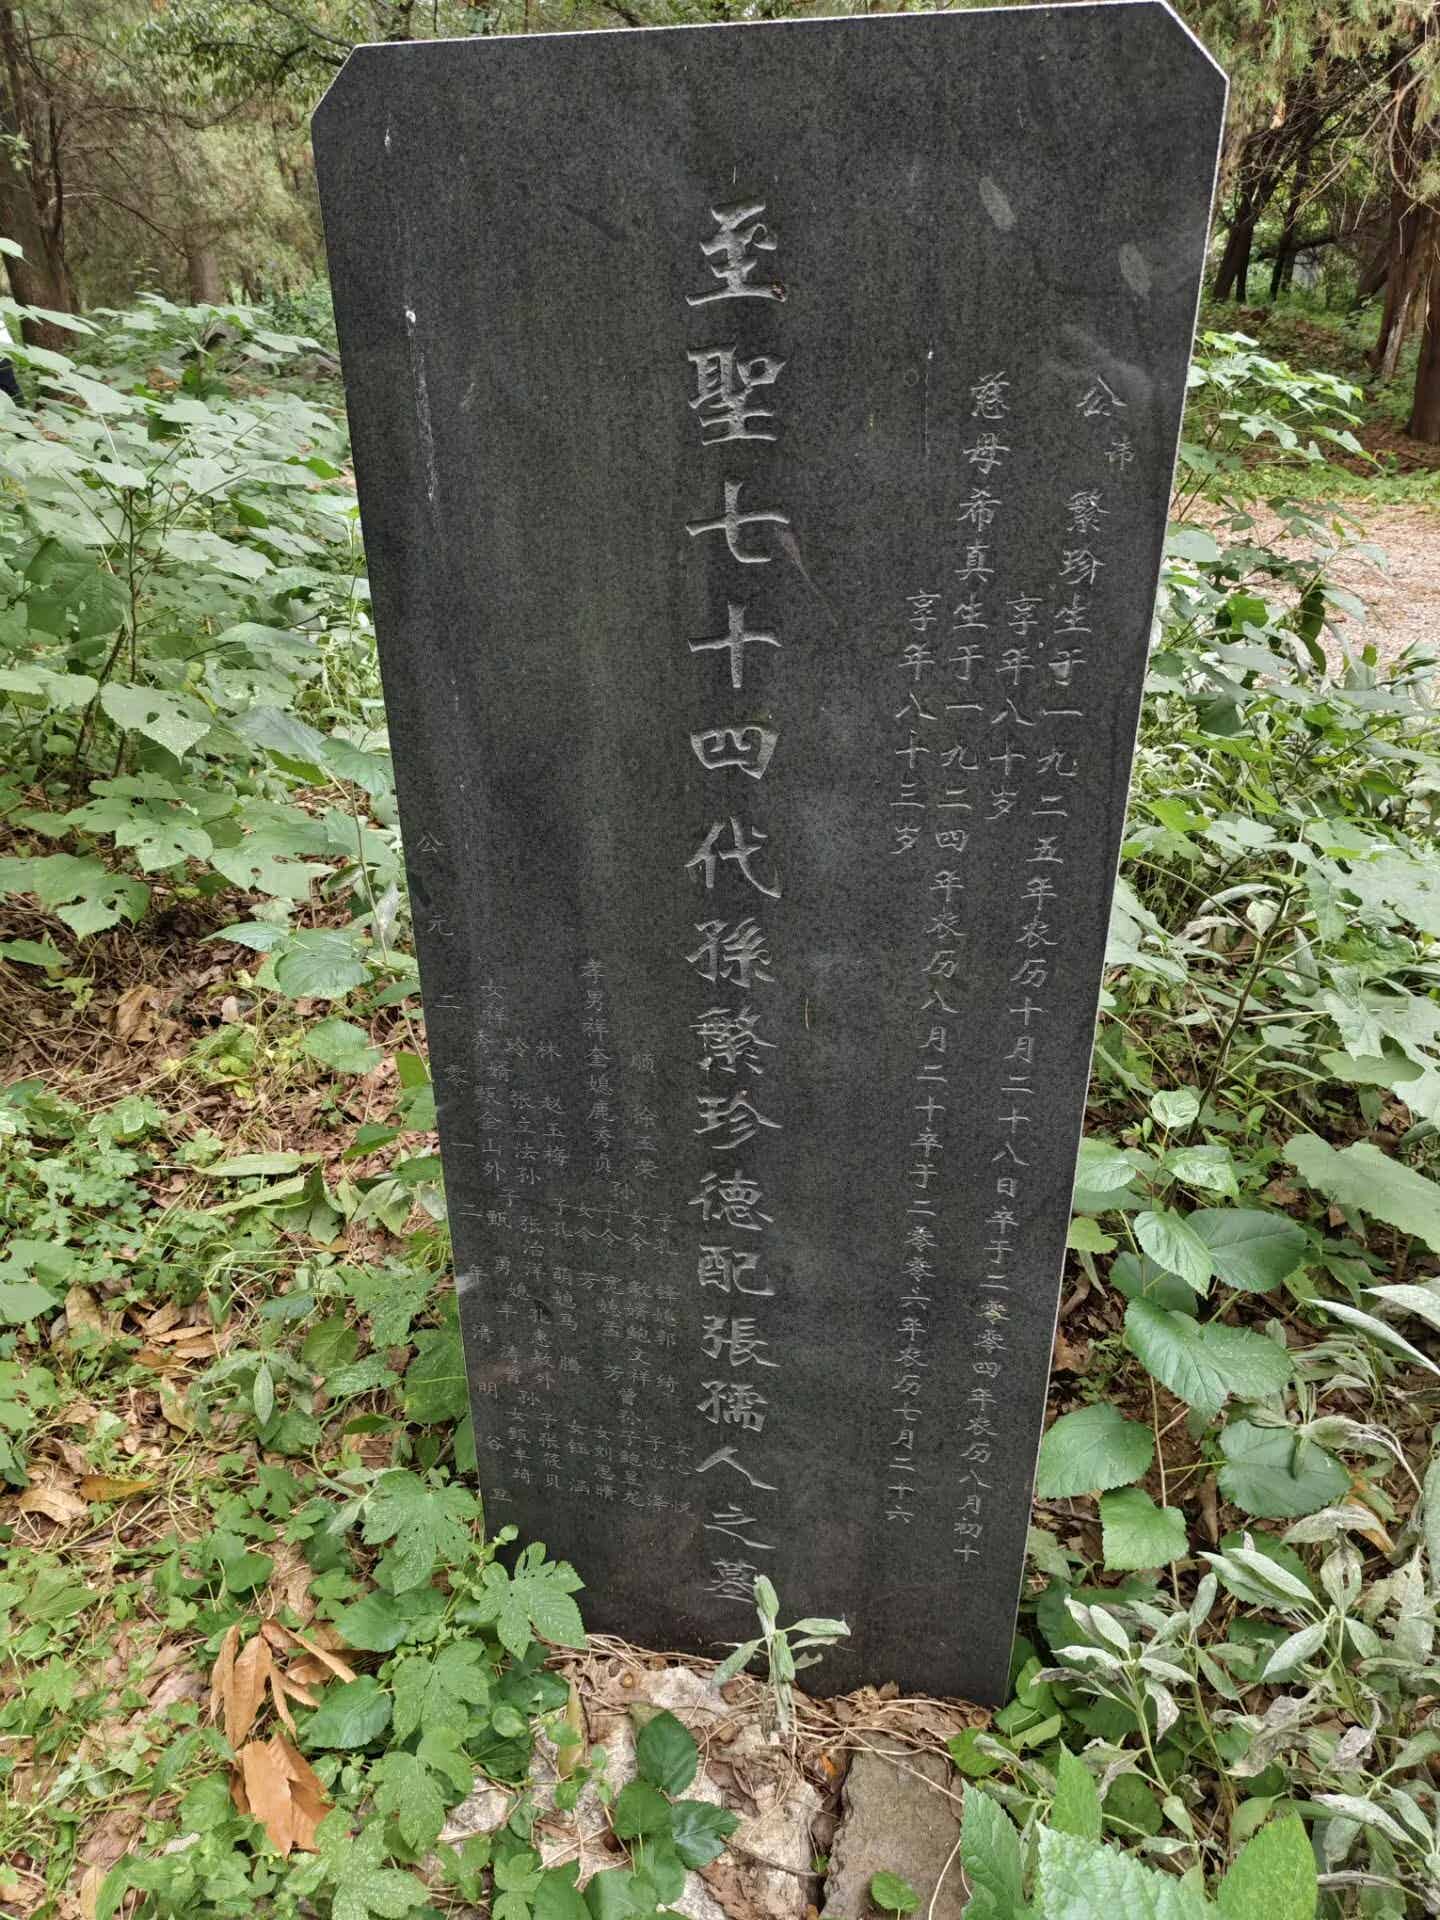 公 讳 繁珍生于一九二五年农历十月二十八日卒于二零零四年农历八月初十
享年八十岁
慈母希真生于一九二四年农历八月二十卒于二零零六年农历七月二十六
享年八十三岁
至聖七十四代孫繁珍德配張孺人之墓
顺 徐玉荣 子孔 媳郭 绮 子心 泽 女心
孙女令敏婿鲍文祥 曾孙子鲍昱龙
孝男祥奎媳鹿秀贞 子令 媳孟 芳 女刘思晴
女令 芳
林 赵玉梅 子孔 萌媳马 腾 女钰涵
玲 张立法孙 张治洋 孔惠敏外 子张筱贝
女祥 婿甄金山外子甄 勇媳 孙女甄丰琦
公元二零一二年清明 谷旦